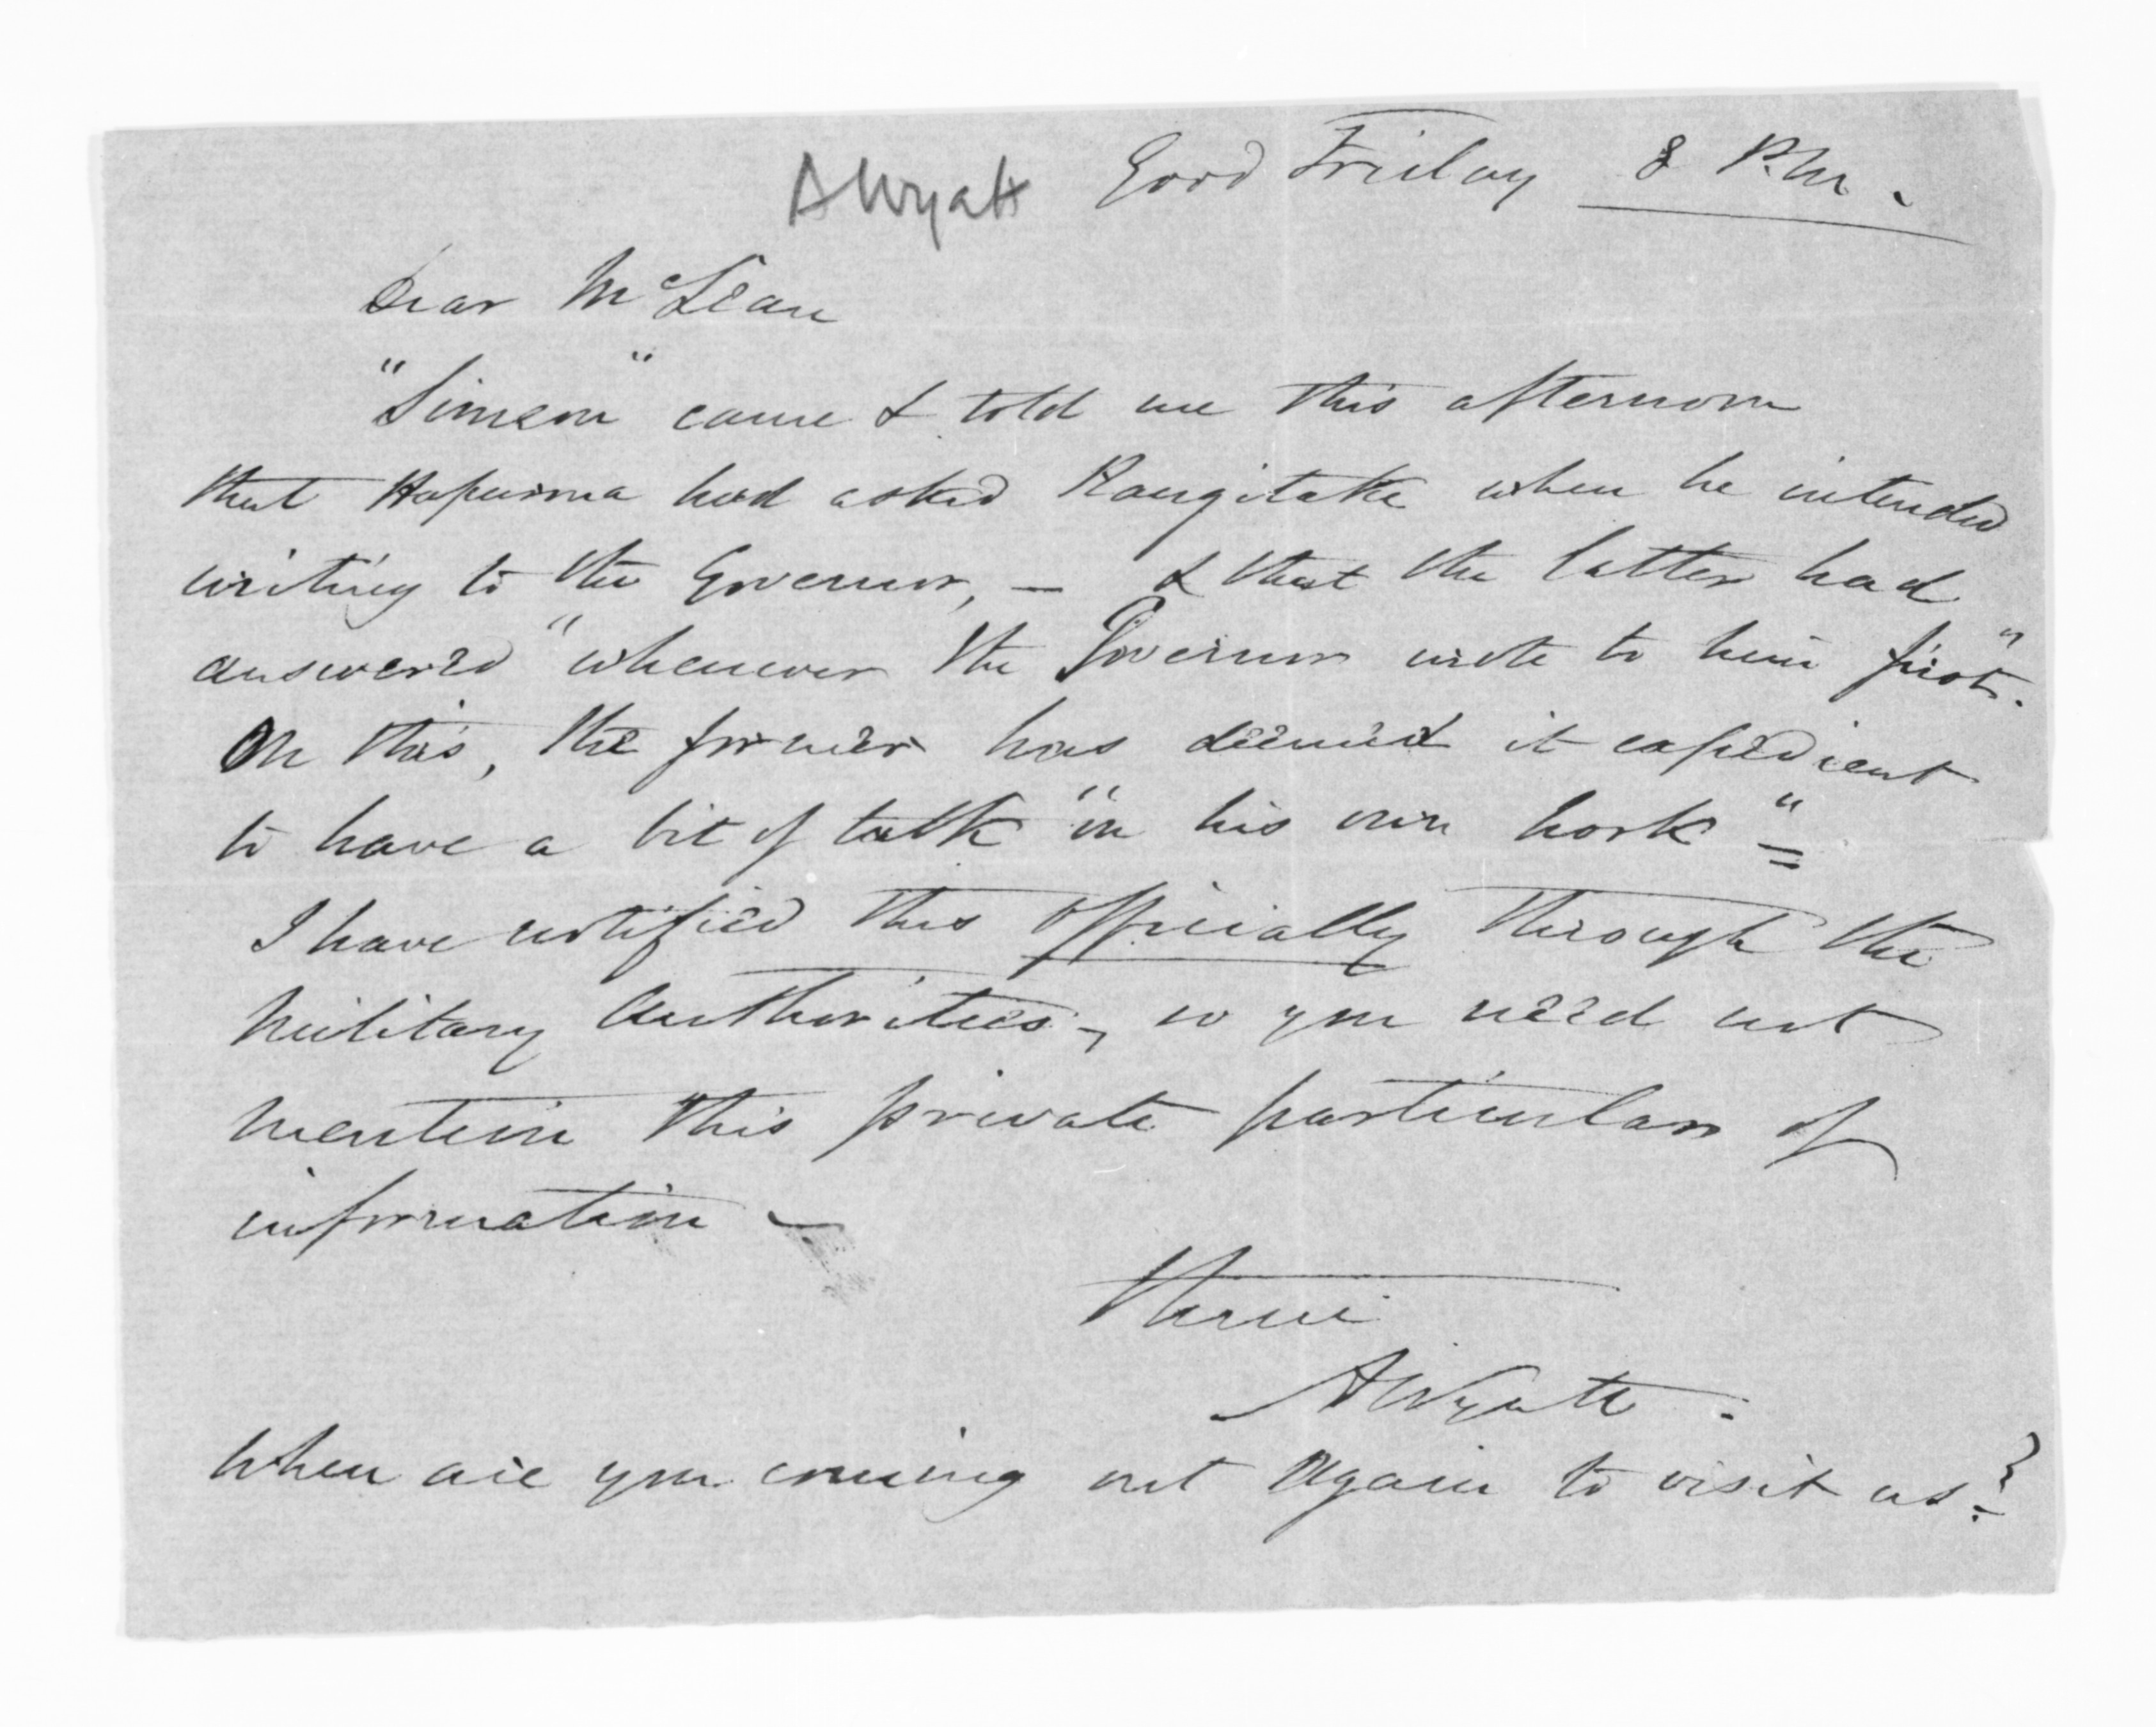 A Wyatt Good Friday 8 P.M.
Dear McLean
"Simeon" came & told me this afternoon
that Hapurona had asked Rangitake when he intended
writing to the Governor, — & that the latter had
answered "whenever the Governor wrote to him first".
On this, the former has deemed it expedient
to have a bit of talk "on his own hook" =
I have notified this officially through the
Military Authorities, so you need not
mention this private particular of
information —
Thine
A Wyatt.
When are you coming out again to visit us?